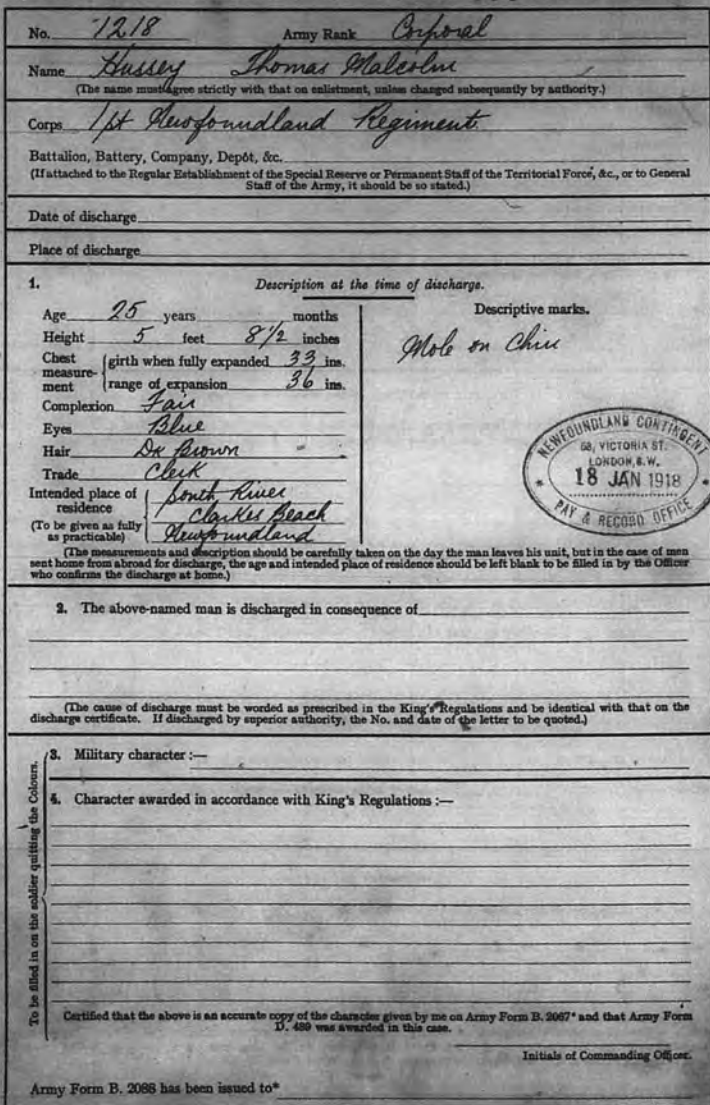 No. 1218 Army Rank Corporal
Name Hussey Thomas Malcolm
(The name must agree strictly with that on enlistment, unless changed subsequently by authority.)
Corps 1st Newfoundland Regiment.
Battalion, Battery, Company, Depôt, &c.
(If attached to the Regular Establishment of the Special Reserve or Permanent Staff of the Territorial Force, &c., or to General
Staff of the Army, it should be so stated.)
Date of discharge
Place of discharge
1. Description at the time of discharge.
Age 25 years months
Height 5 feet 8 1/2 inches
Chest measure-ment
girth when fully expanded 33 ins.
range of expansion 36 ins.
Complexion Fair
Eyes Blue
Hair Dk Brown
Trade Clerk
Intended place of residence
(To be given as fully as practicable)
South River
Clarkes Beach
Newfoundland
Descriptive marks.
Mole on Chin
NEWFOUNDLAND CONTINGENT
58, VICTORIA ST.
LONDON, S.W.
18 JAN 1918
PAY & RECORD OFFICE
(The measurements and description should be carefully taken on the day the man leaves his unit, but in the case of men
sent home from abroad for discharge, the age and intended place of residence should be left blank to be filled in by the Officer
who confirms the discharge at home.)
2. The above-named man is discharged in consequence of
(The cause of discharge must be worded as prescribed in the King's Regulations and be identical with that on the
discharge certificate. If discharged by superior authority, the No. and date of the letter to be quoted.)
To be filled in on the soldier quitting the Colours.
3. Military character :—
4. Character awarded in accordance with King's Regulations :—
Certified that the above is an accurate copy of the character given by me on Army Form B. 2067* and that Army Form
D. 489 was awarded in this case.
Initials of Commanding Officer.
Army Form B. 2088 has been issued to*